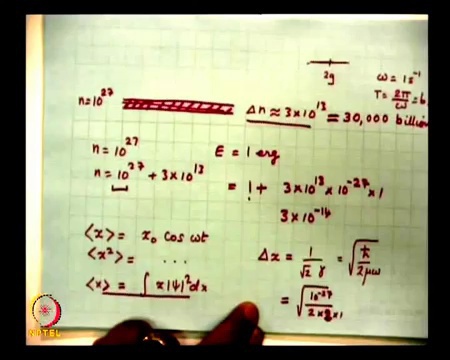 2g
ω = 1 s⁻¹
T = 2π/ω = 6
n = 10²⁷
Δn ≈ 3 × 10¹³ = 30,000 billion
n = 10²⁷
E = 1 erg
n = 10²⁷ + 3 × 10¹³
= 1 + 3 × 10¹³ × 10⁻²⁷ × 1
3 × 10⁻¹⁴
⟨x⟩ = x₀ cos ωt
⟨x²⟩ = . . .
Δx = 1/(√2 γ) = √(ħ/2μω)
⟨x⟩ = ∫ x|ψ|² dx
= √(10⁻²⁷/2×2×1)
NPTEL